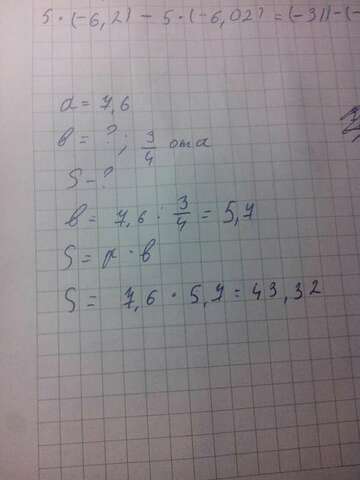 5 · (-6,2) - 5 · (-6,02) = (-31) - (-
a = 7,6
b = ? ; 3/4 от a
S - ?
b = 7,6 · 3/4 = 5,7
S = a · b
S = 7,6 · 5,7 = 43,32